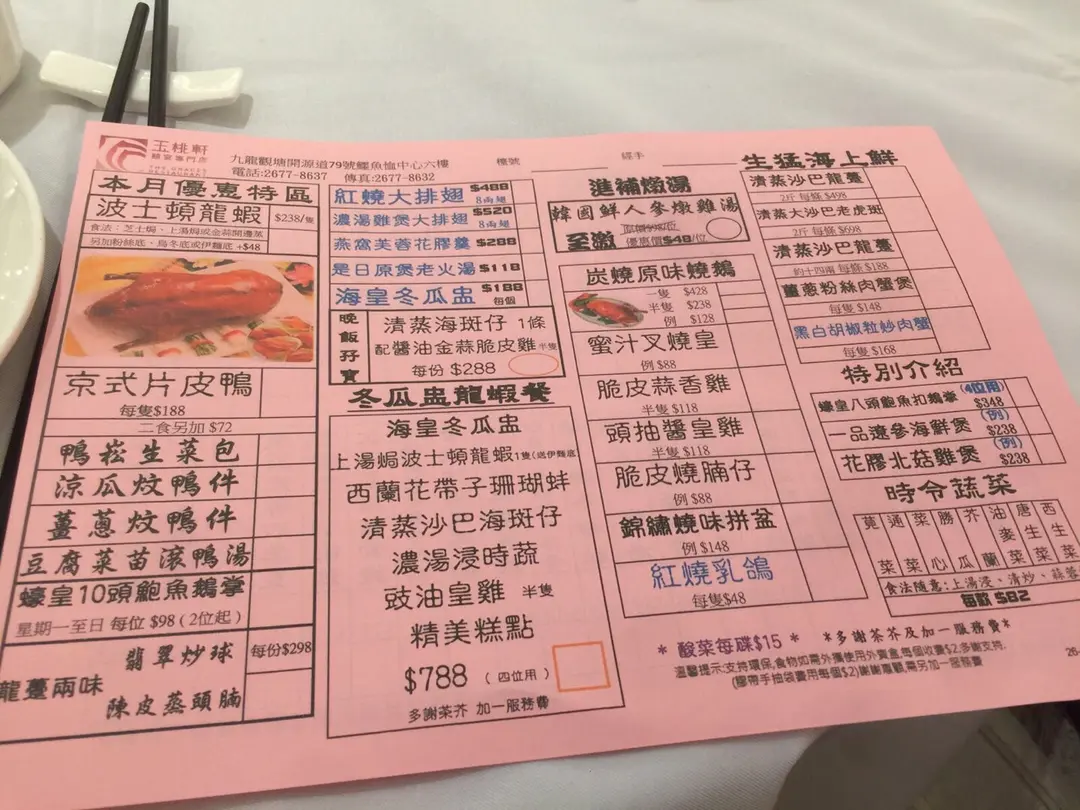 玉桃軒
九龍觀塘開源道79號鱷魚恤中心六樓
電話:2677-8637 傳真:2677-8632
檯號
經手
本月優惠特區
波士頓龍蝦 $238/隻
食法：芝士焗、上湯焗或金蒜開邊蒸
另加粉絲底、烏冬底或伊麵底 +$48
京式片皮鴨
每隻$188
二食另加 $72
鴨崧生菜包
涼瓜炆鴨件
薑蔥炆鴨件
豆腐菜苗滾鴨湯
蠔皇10頭鮑魚鵝掌
星期一至日 每位 $98 (2位起)
龍躉兩味
翡翠炒球 每份$298
陳皮蒸頭腩
紅燒大排翅 $488
8両翅
濃湯雞煲大排翅 $520
8両翅
燕窩芙蓉花膠羹 $288
是日原煲老火湯 $118
海皇冬瓜盅 $188
每個
晚飯孖寶
清蒸海斑仔 1條
配醬油金蒜脆皮雞 半隻
每份 $288
冬瓜盅龍蝦餐
海皇冬瓜盅
上湯焗波士頓龍蝦1隻(送伊麵底
西蘭花帶子珊瑚蚌
清蒸沙巴海斑仔
濃湯浸時蔬
豉油皇雞 半隻
精美糕點
$788 (四位用)
多謝茶芥 加一服務費
滋補燉湯
韓國鮮人參燉雞湯
至激 優惠價$48/位
炭燒原味燒鵝
一隻 $428
半隻 $238
例 $128
蜜汁叉燒皇
例 $88
脆皮蒜香雞
半隻 $118
頭抽醬皇雞
半隻 $118
脆皮燒腩仔
例 $88
錦繡燒味拼盆
例 $148
紅燒乳鴿
每隻$48
生猛海上鮮
清蒸沙巴龍躉
2斤 每條 $498
清蒸大沙巴老虎斑
2斤 每條 $698
清蒸沙巴龍躉
約十四兩 每條 $188
薑蔥粉絲肉蟹煲
每隻 $148
黑白胡椒粒炒肉蟹
每隻 $168
特別介紹
蠔皇八頭鮑魚扣鵝掌 (4位用) $348
一品遼參海鮮煲 (例) $238
花膠北菇雞煲 (例) $238
時令蔬菜
莧菜 通菜 菜心 勝瓜 芥蘭 油麥菜 唐生菜 西生菜
食法隨意:上湯浸、清炒、蒜蓉
每款 $82
* 酸菜每碟$15 * *多謝茶芥及加一服務費*
溫馨提示:支持環保,食物如需外攜使用外賣盒,每個收費$2,多謝支持.
(膠帶手抽袋費用每個$2)謝謝惠顧,需另加一服務費